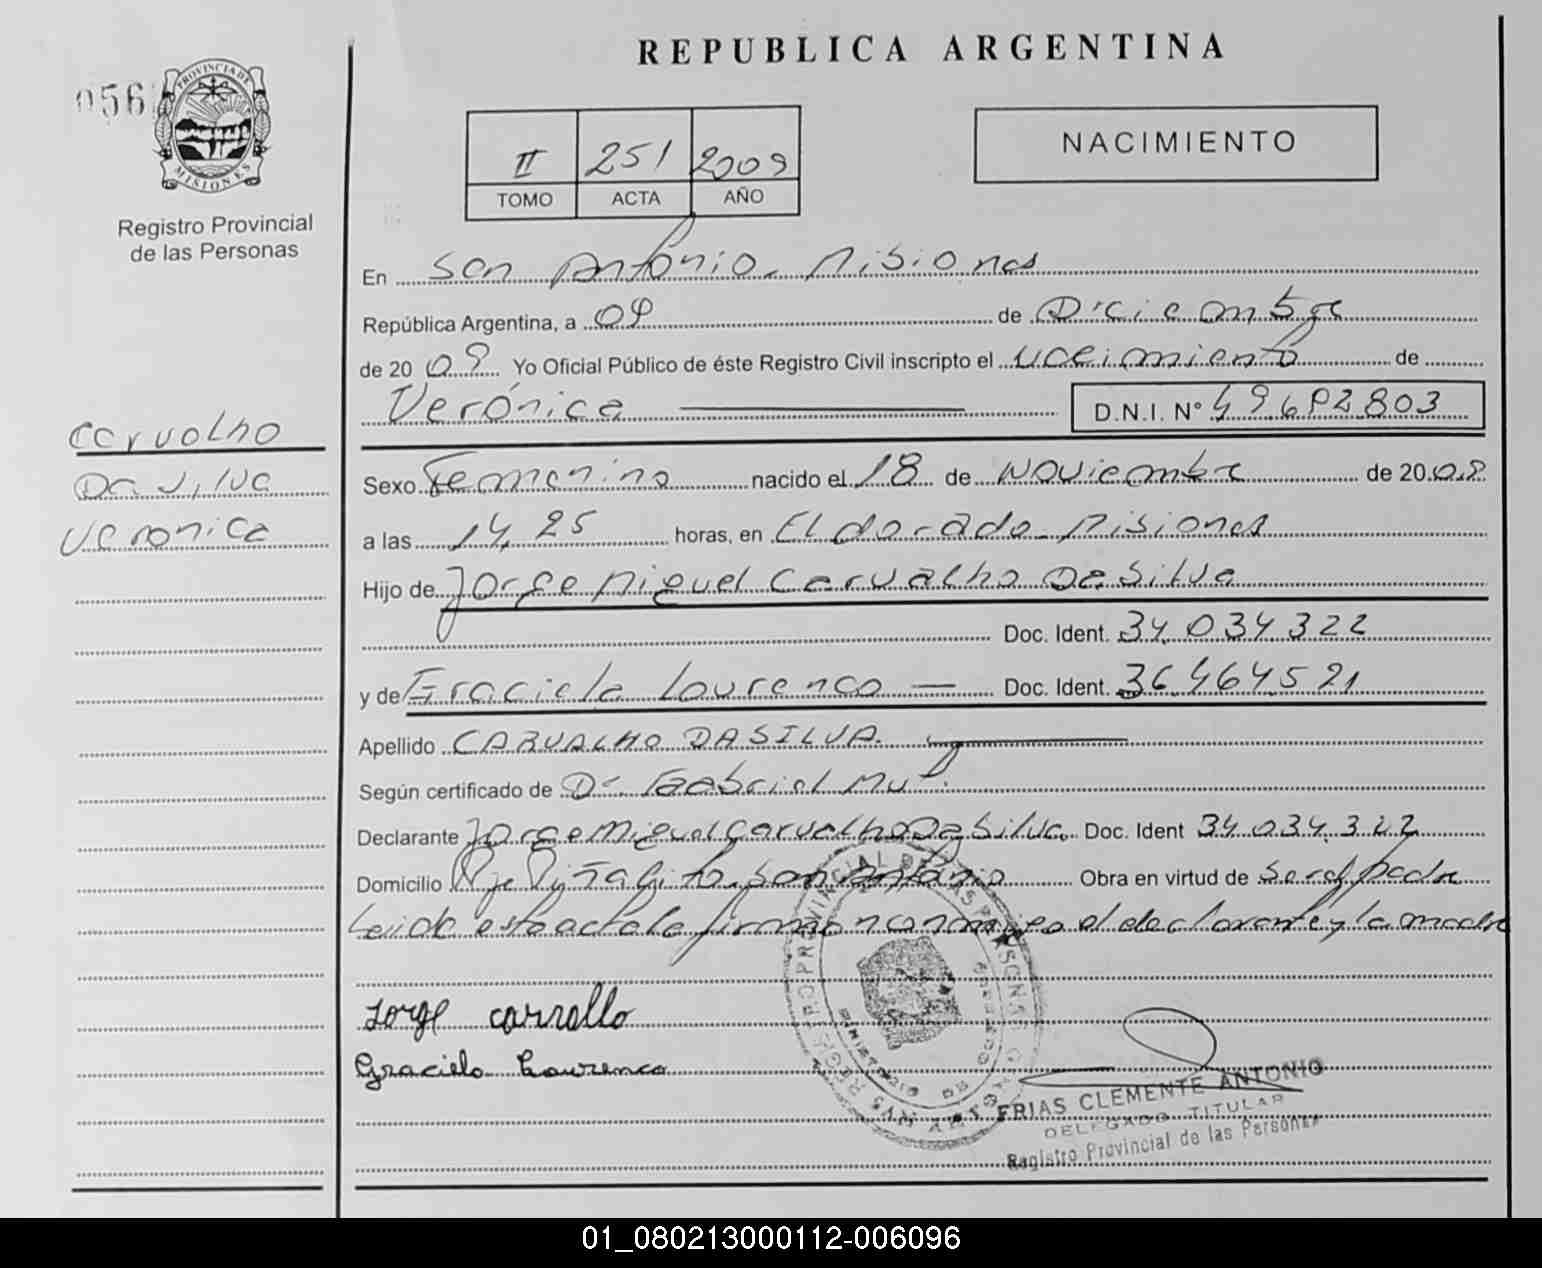 REPUBLICA ARGENTINA
056
PROVINCIA DE MISIONES
Registro Provincial
de las Personas
II 251 2009
TOMO ACTA AÑO
NACIMIENTO
En San Antonio. Misiones
República Argentina, a 09 de Diciembre
de 20 09 Yo Oficial Público de éste Registro Civil inscripto el nacimiento de
Verónica D.N.I. N° 49682803
Carvalho
Da Silva
Veronica
Sexo Femenino nacido el 18 de Noviembre de 20.09.
a las 14,25 horas, en Eldorado. Misiones
Hijo de Jorge Miguel Carvalho Da Silva
Doc. Ident. 34.034.322
y de Graciela Lourenco Doc. Ident. 36.464.521
Apellido CARVALHO DA SILVA.
Según certificado de Dr Gabriel
Declarante Jorge Miguel Carvalho Da Silva. Doc. Ident 34.034.322
Domicilio San Antonio Obra en virtud de ser el padre
Leida esta acta la firman conmigo el declarante y la madre
Jorge Carvallo
Graciela Lourenco
FRIAS CLEMENTE ANTONIO
DELEGADO TITULAR
Registro Provincial de las Personas
01_080213000112-006096